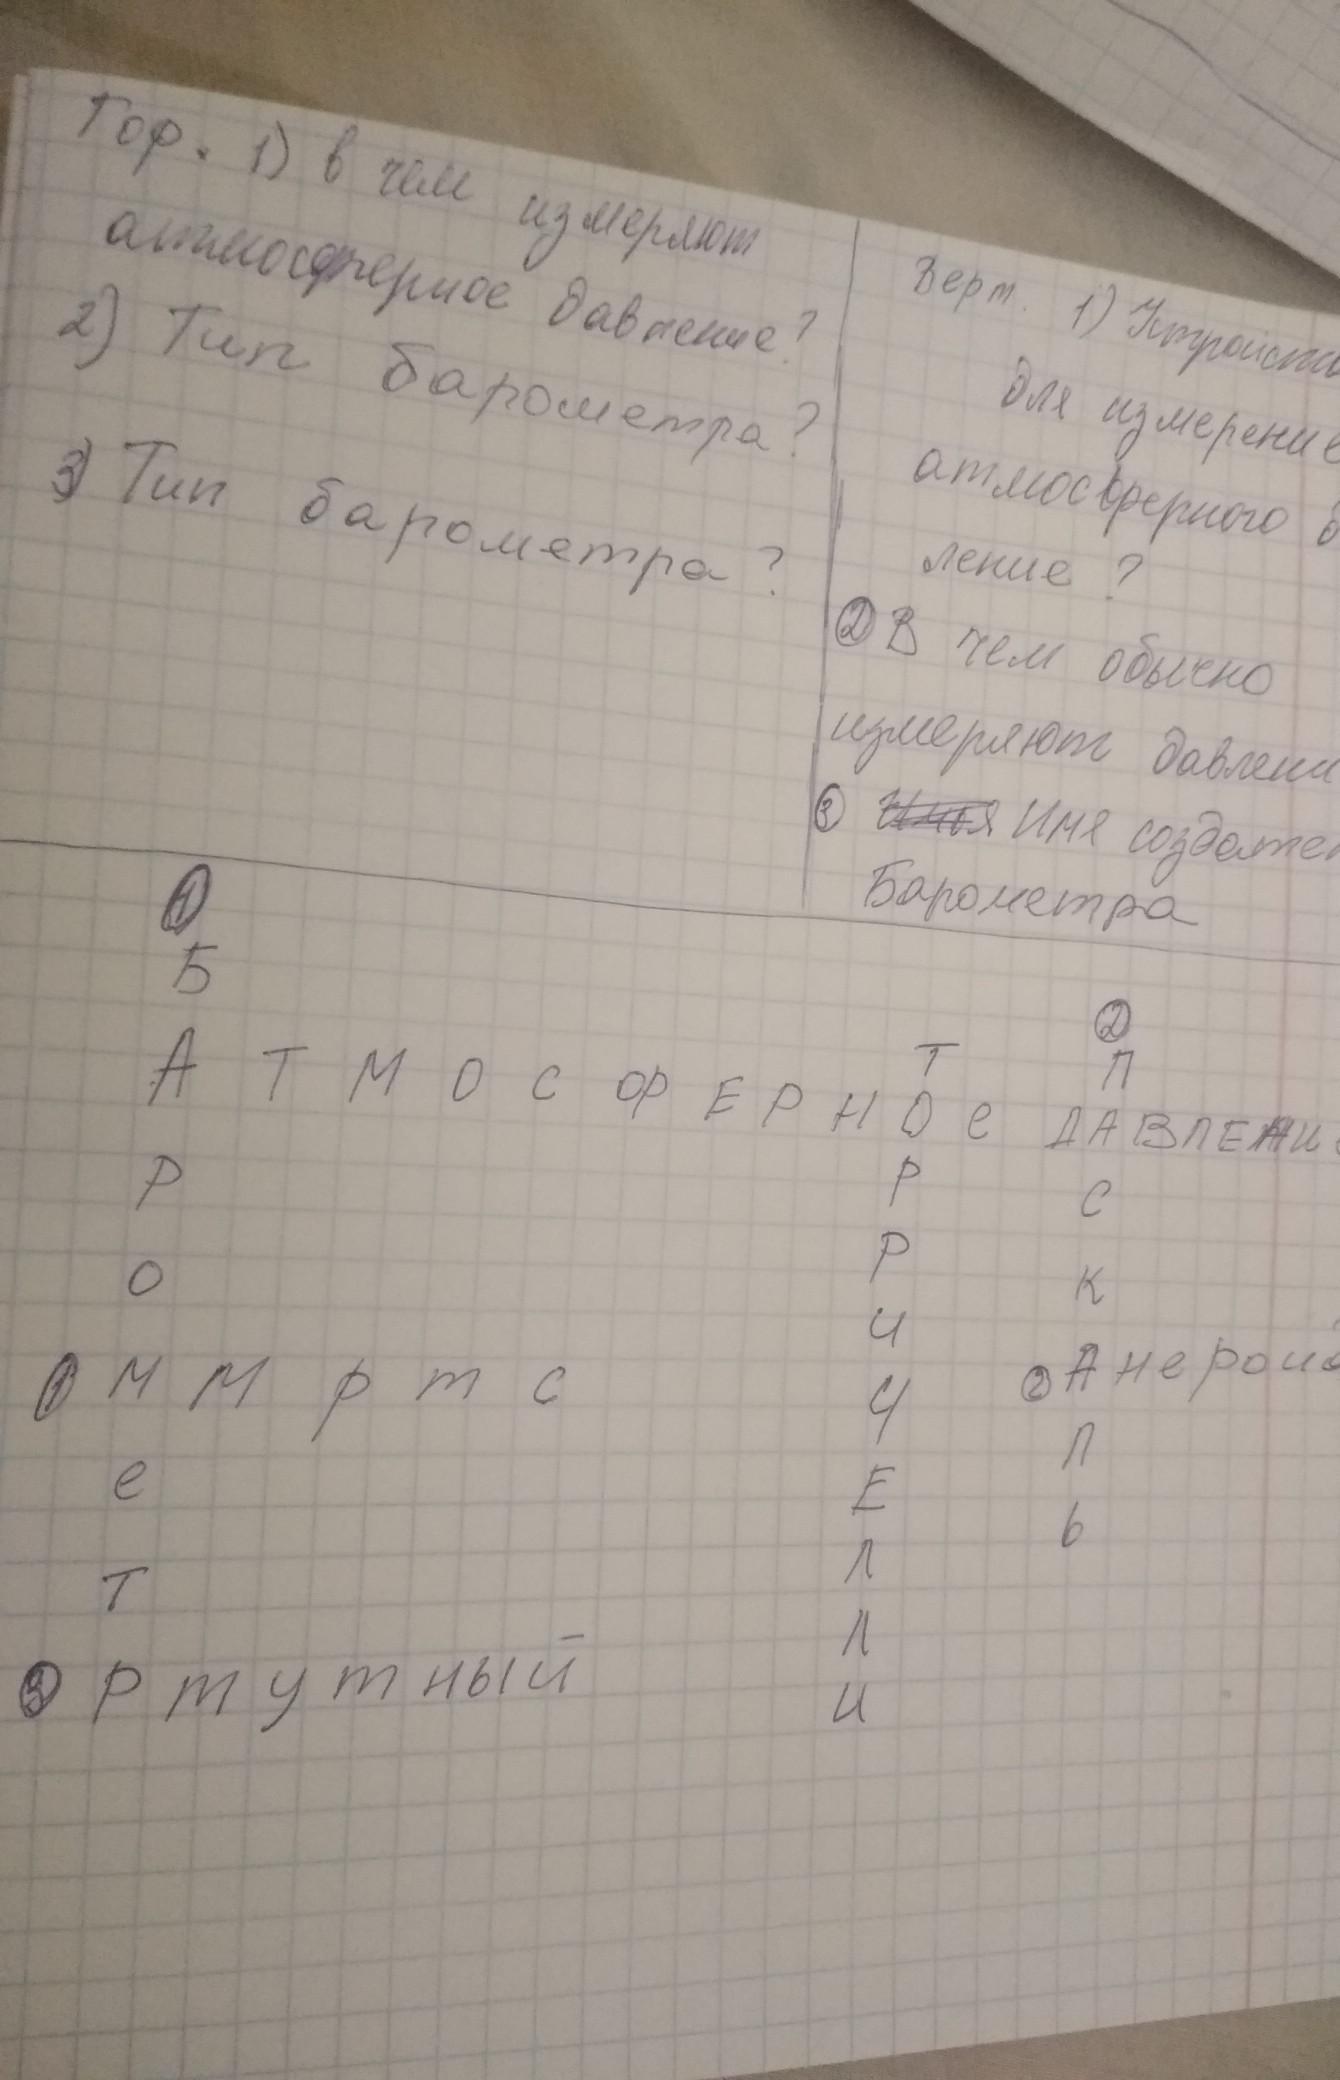 Гор. 1) в чем измеряют
атмосферное давление?
2) Тип барометра?
3) Тип барометра?
Верт. 1) Устройство
для измерение
атмосферного
ление?
2 В чем обычно
измеряют давлени
3 Имя создател
Барометра
1
Б
2
Т П
А Т М О С Ф Е Р Н О е ДАВЛЕНИ
Р Р С
О Р К
И
1 М М р т с 2 Анерои
Ч
е Е Л
Л Ь
Т Л
3 Р т у т н ы й И